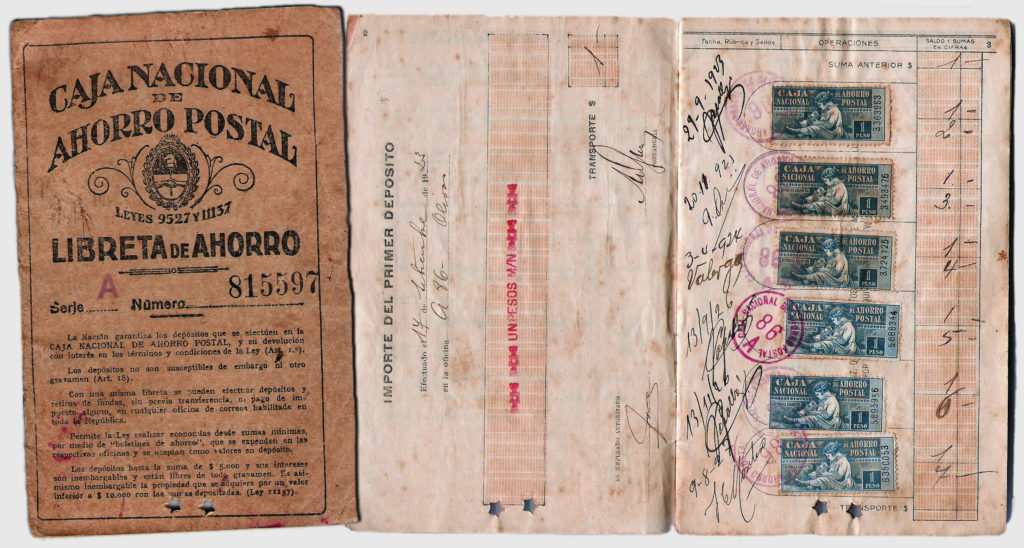 CAJA NACIONAL
DE
AHORRO POSTAL
LEYES 9527 Y 11137
LIBRETA DE AHORRO
Serie A Número 815597
La Nación garantiza los depósitos que se efectúen en la
CAJA NACIONAL DE AHORRO POSTAL, y su devolución
con interés en los términos y condiciones de la Ley (Art. 1.º).
Los depósitos no son susceptibles de embargo ni otro
gravamen (Art. 18).
Con una misma libreta se pueden efectuar depósitos y
retiros de fondos, sin previa transferencia, ni pago de im-
puesto alguno, en cualquier oficina de correos habilitada en
toda la República.
Permite la Ley realizar economías desde sumas mínimas,
por medio de "boletines de ahorro", que se expenden en las
respectivas oficinas y se aceptan como valores en depósito.
Los depósitos hasta la suma de $ 5.000 y sus intereses
son inembargables y están libres de todo gravamen. Es asi-
mismo inembargable la propiedad que se adquiere por un valor
inferior a $ 10.000 con las sumas depositadas. (Ley 11137).
2
IMPORTE DEL PRIMER DEPOSITO
Efectuado el 17 de Setiembre de 19
en la oficina A 86
UN PESOS M/N
EL EMPLEADO AUTORIZADO
TRANSPORTE $ 1
CONTADURIA
Fecha, Rúbrica y Sellos OPERACIONES SALDO Y SUMAS
EN CIFRAS 3
SUMA ANTERIOR $ 1
29-9-1923
CAJA NACIONAL DE AHORRO POSTAL 1 PESO 3363963
1
2
20 11 923
CAJA NACIONAL DE AHORRO POSTAL 1 PESO 3493476
1
3
3-4-924
CAJA NACIONAL DE AHORRO POSTAL 1 PESO 3724725
1
4
13/9/26
86
A
CAJA NACIONAL DE AHORRO POSTAL 1 PESO
1
5
13/11/26
CAJA NACIONAL DE AHORRO POSTAL 1 PESO 5895956
1
6
9-8-
CAJA NACIONAL DE AHORRO POSTAL 1 PESO 6350053
1
7
TRANSPORTE $